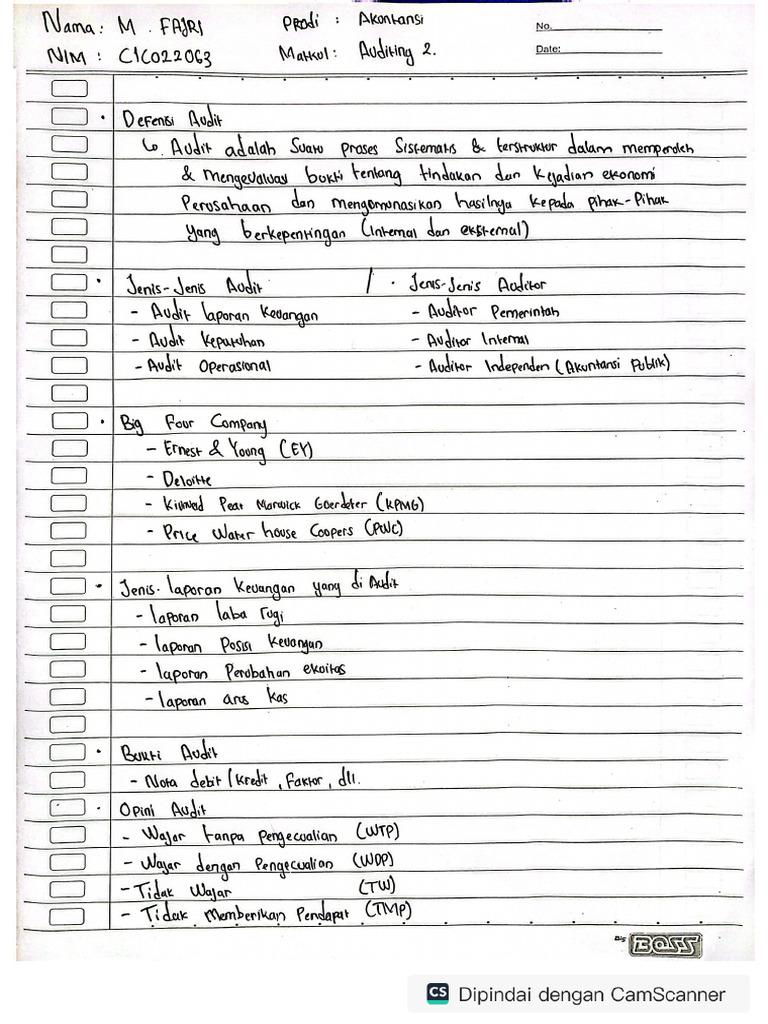 Nama: M. FAJRI
Prodi : Akontansi
No.
NIM : C1C022063
Matkul: Auditing 2.
Date:
• Defenisi Audit
↳ Audit adalah Suatu proses Sistematis & terstruktur dalam memperoleh
& mengevaluasi bukti tentang tindakan dan Kejadian ekonomi
Perusahaan dan mengomunasikan hasilnya kepada pihak-Pihak
yang berkepentingan (Internal dan eksternal)
• Jenis-Jenis Audit / • Jenis-Jenis Auditor
- Audit laporan Keuangan - Auditor Pemerintah
- Audit Kepatuhan - Auditor Internal
- Audit Operasional - Auditor Independen (Akuntansi Publik)
• Big Four Company
- Ernest & Young (EY)
- Deloitte
- Peat Marwick Goerdeter (KPMG)
- Price Water house Coopers (PWC)
• Jenis-laporan Keuangan yang di Audit
- laporan laba rugi
- laporan Posisi Keuangan
- laporan Perubahan ekuitas
- laporan arus kas
• Bukti Audit
- Nota debit/kredit, faktor, dll.
• Opini Audit
- Wajar tanpa pengecualian (WTP)
- Wajar dengan Pengecualian (WDP)
- Tidak Wajar (TW)
- Tidak Memberikan Pendapat (TMP)
Big BOSS
CS Dipindai dengan CamScanner